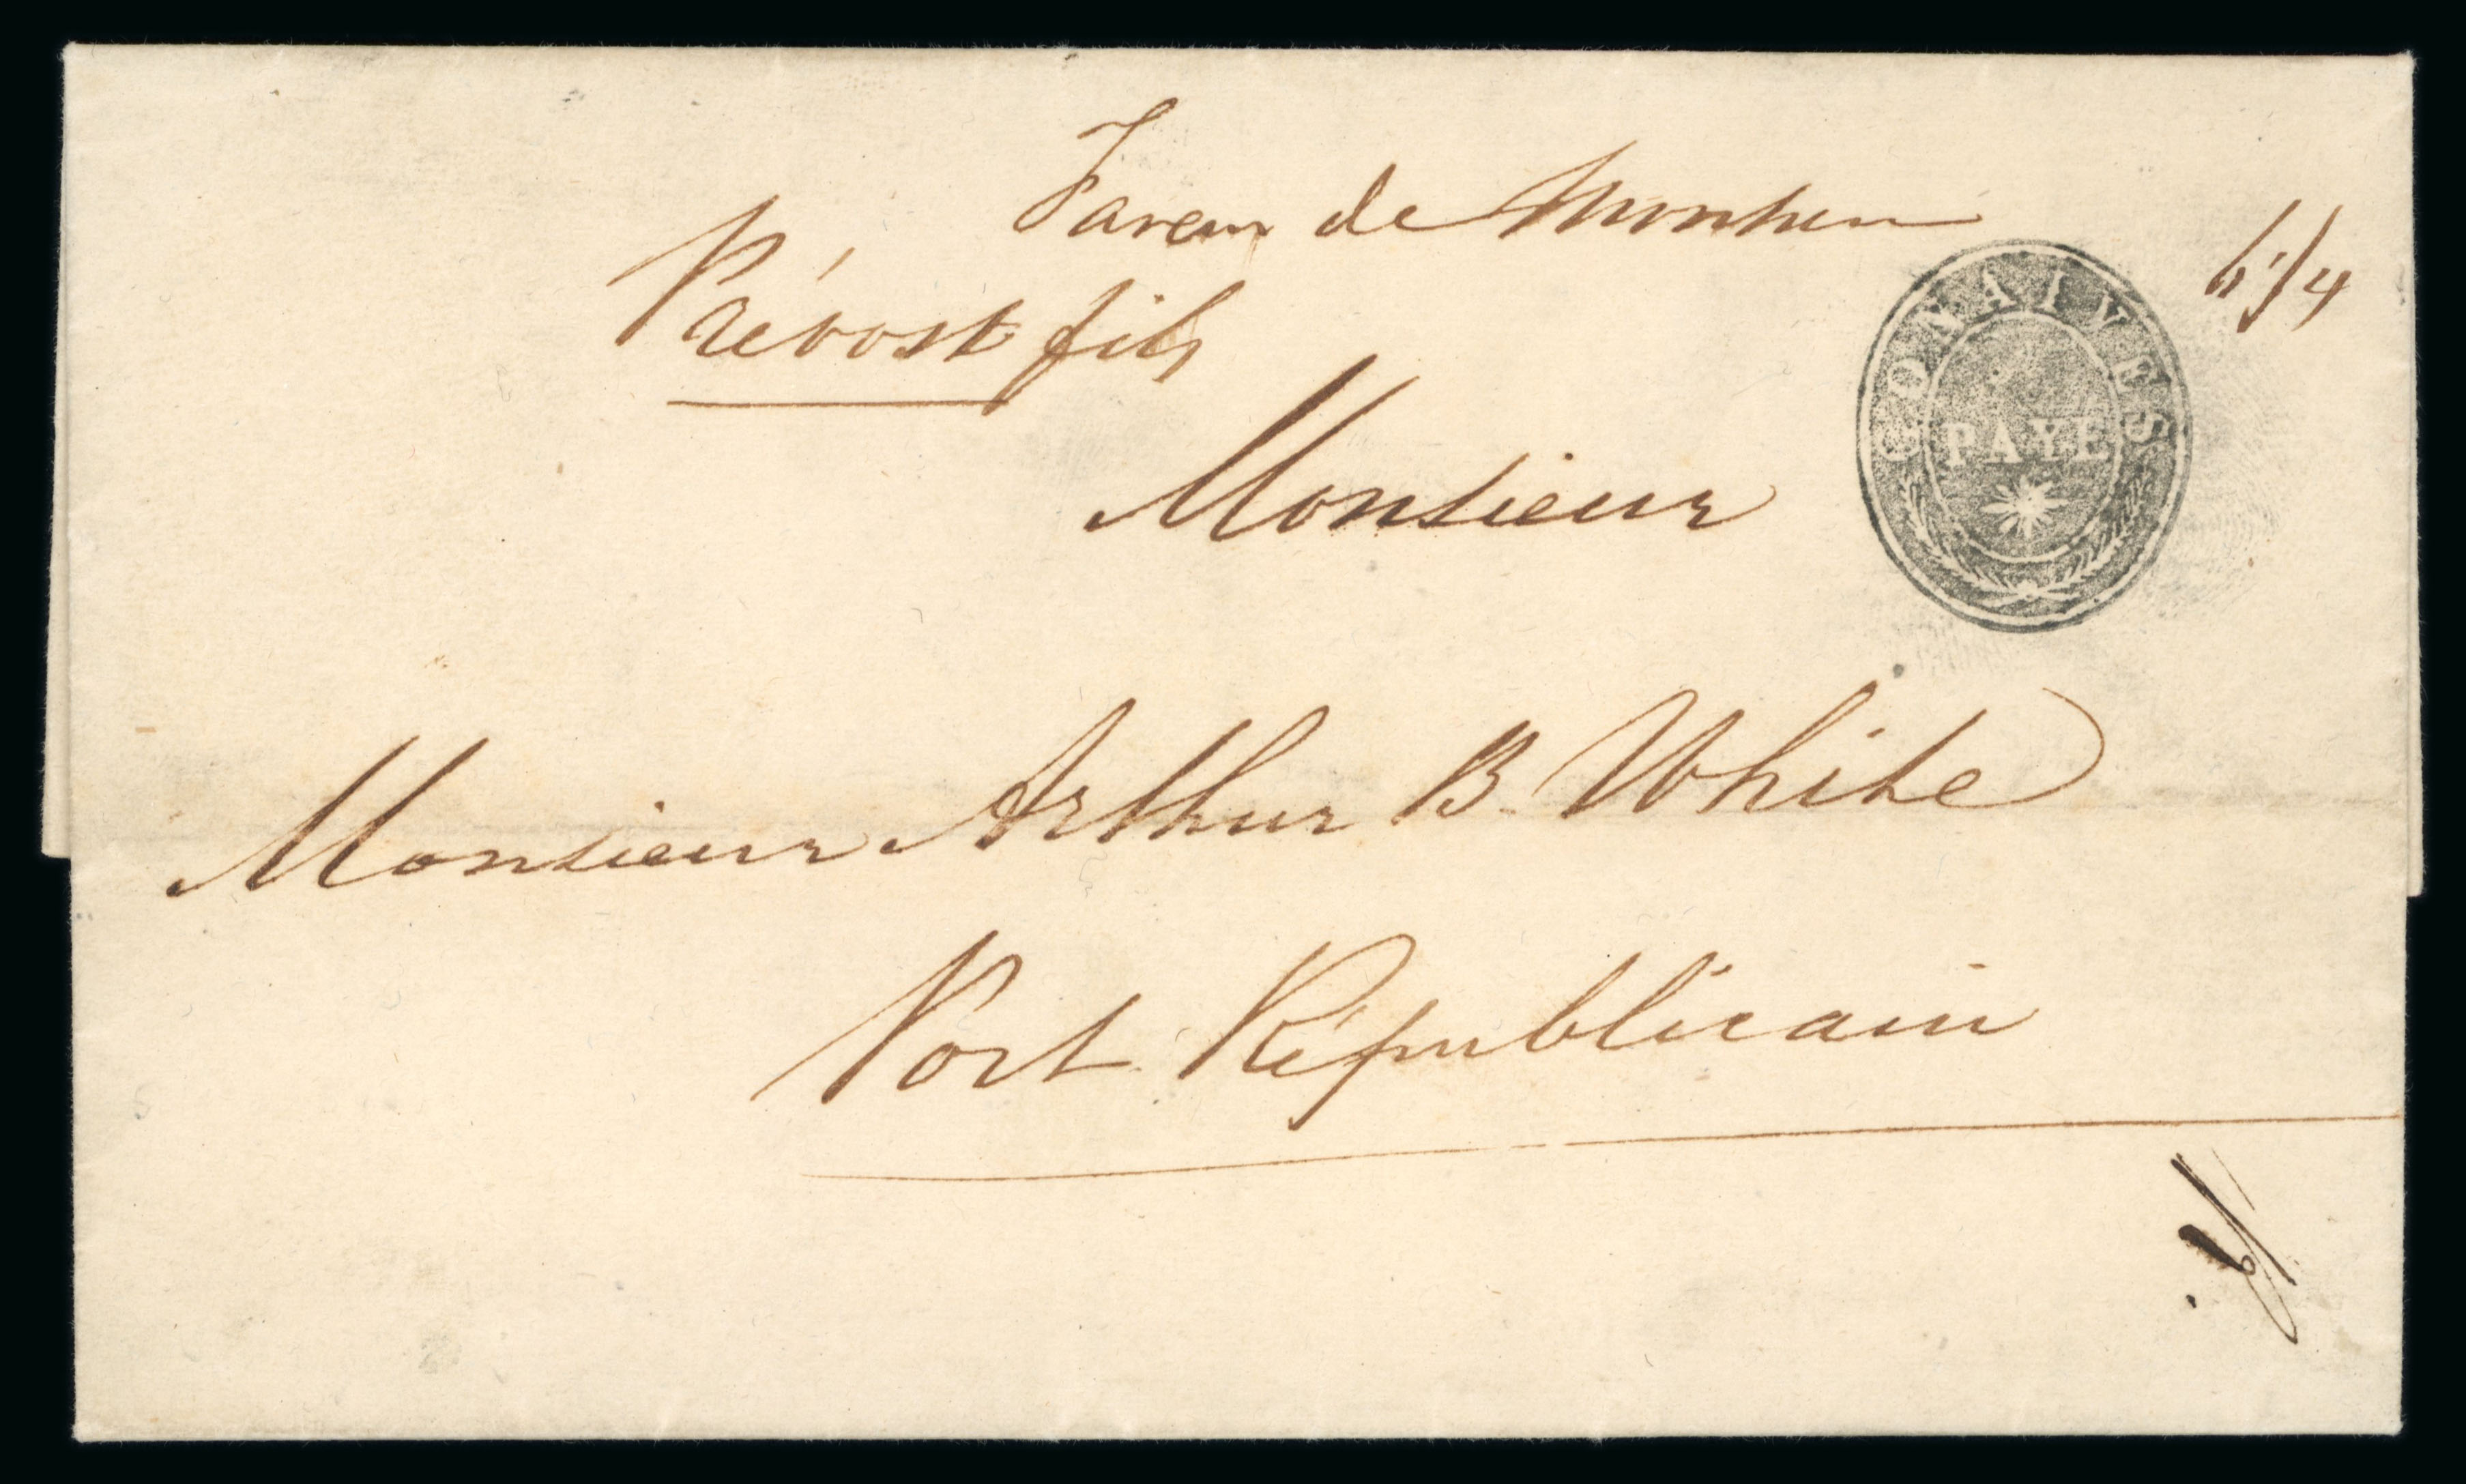 Faveur de Monsieur
Prévost fils
GONAIVES
PAYE
6 1/4
Monsieur
Monsieur Arthur B. White
Port Républicain